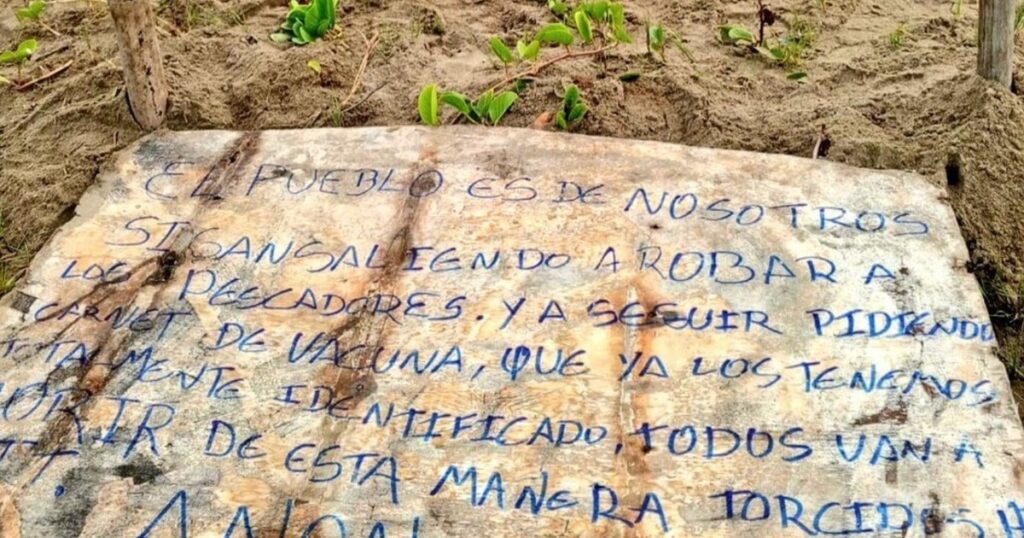 EL PUEBLO ES DE NOSOTROS
SIGANSALIENDO A ROBAR A
LOS PESCADORES. Y A SEGUIR PIDIENDO
CARNET DE VACUNA, QUE YA LOS TENEMOS
TOTALMENTE IDENTIFICADO, TODOS VAN A
MORIR DE ESTA MANERA TORCIDOS H